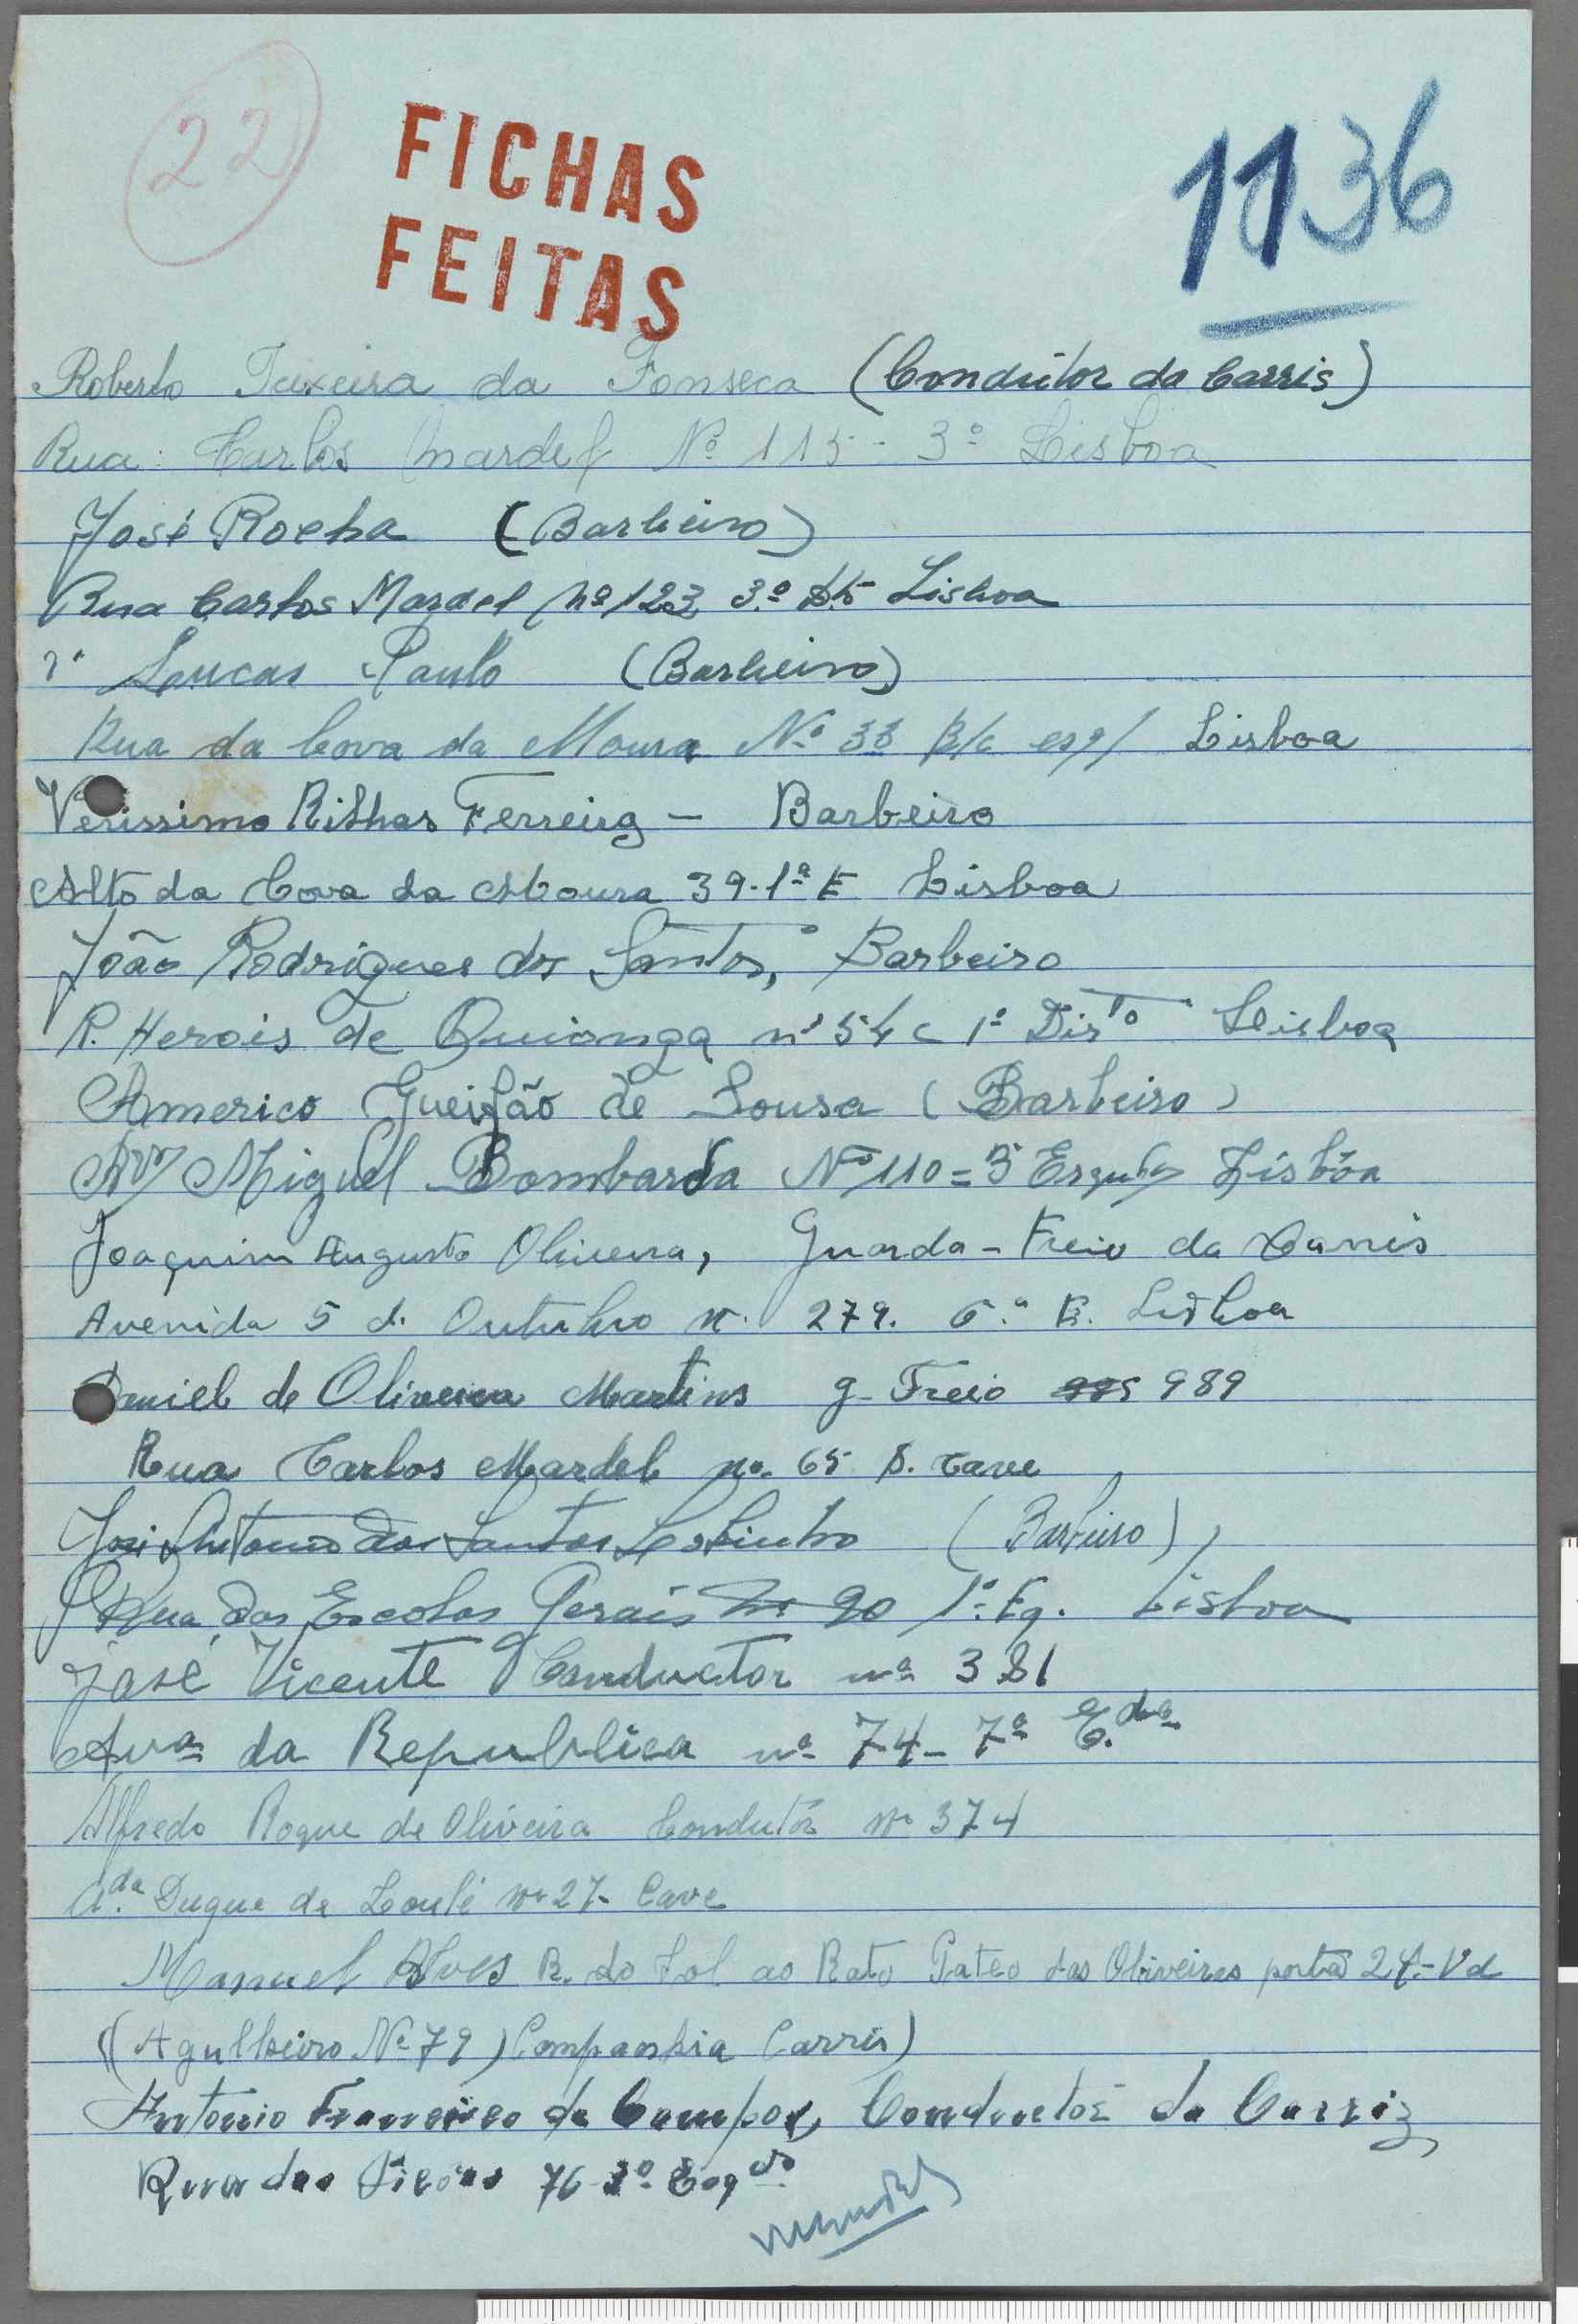 22
FICHAS
FEITAS
1136
Roberto Teixeira da Fonseca (Condutor da Carris)
Rua: Carlos Mardel Nº 115 - 3º Lisboa
José Rocha (Barbeiro)
Rua Carlos Mardel nº 123 3º Lisboa
Lucas Paulo (Barbeiro)
Rua da Cova da Moura Nº 33 R/c esq/ Lisboa
Verissimo Rilhas Ferreira - Barbeiro
Alto da Cova da Moura 39-1º E Lisboa
João Rodrigues dos Santos, Barbeiro
R. Herois de Quionga nº 54 c 1º Dirto Lisboa
Americo Gueifão de Sousa (Barbeiro)
Miguel Bombarda Nº 110 = Lisbôa
Joaquim Augusto Oliveira, Guarda-Freio da Carris
Avenida 5 d. Outubro n. 279. 6º E. Lisboa
Daniel de Oliveira Martins g-Freio 989
Rua Carlos Mardel nº 65 s. cave
José Antonio dos Santos (Barbeiro)
Rua das Escolas Gerais nº 90 1º Eq. Lisboa
José Vicente Conductor nº 381
Avª da Republica nº 74-7º E.da
Alfredo Roque de Oliveira Condutôr nº 374
A.da Duque de Loulé nº 27- Cave
Manuel Alves R. do Sol ao Rato Pateo das Oliveiras porta
(Agulheiro Nº 79) Companhia Carris)
Antonio Francisco de Campos, Conductor da Carris
Rua das 76 3º Esqdo